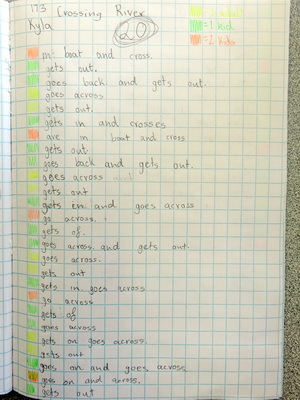 173 Crossing River
Kyla
20
= 1 adult
= 1 kid
= 2 kids
in boat and cross.
gets out.
goes back and gets out.
goes across
gets out.
gets in and crosses
are in boat and cross
gets out.
goes back and gets out.
goes across
gets out
gets in and goes across
go across.
gets of.
goes across and gets out
goes across.
gets out
gets in goes across
go across
gets of
goes across
gets on goes across.
gets out
goes on and goes across
goes on and across.
gets out